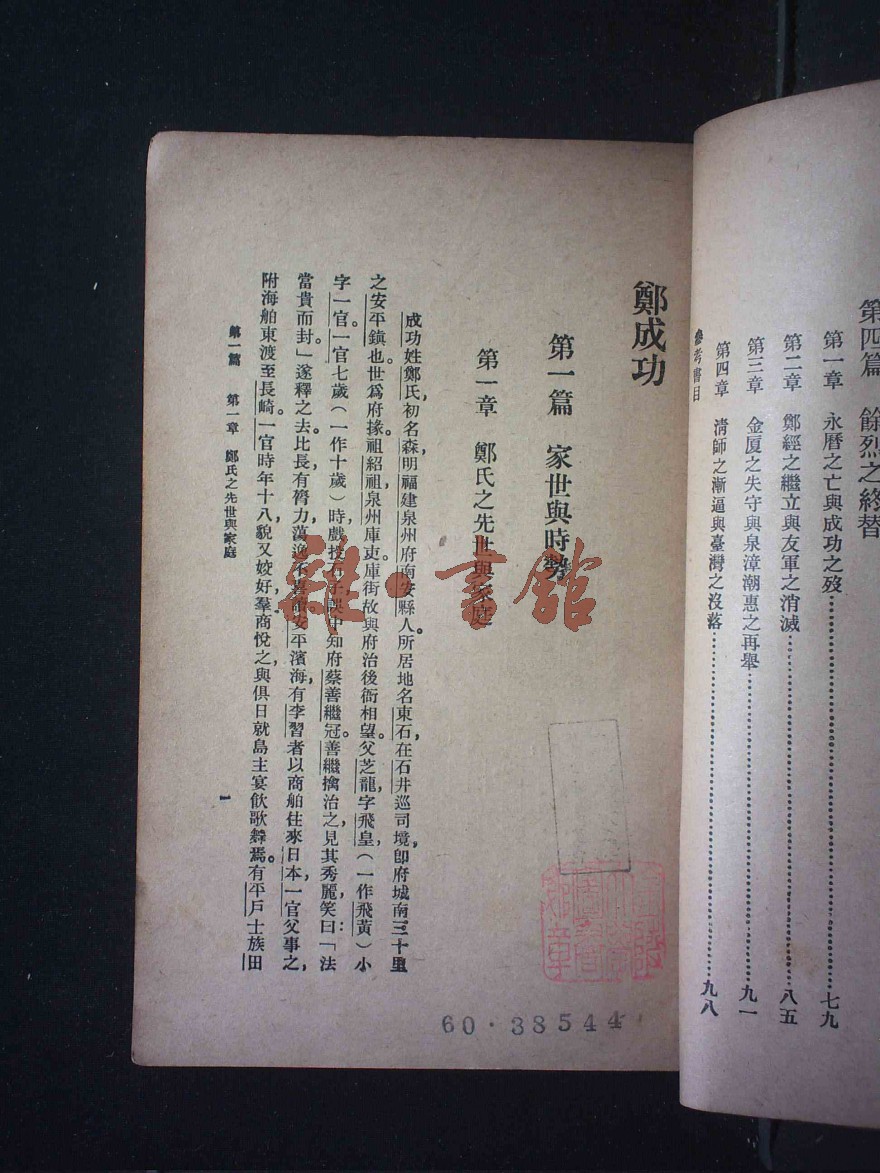 第四篇　餘烈之終替
第一章　永曆之亡與成功之歿……七九
第二章　鄭經之繼立與友軍之消滅……八五
第三章　金厦之失守與泉漳潮惠之再舉……九一
第四章　清師之漸逼與臺灣之沒落……九八
參考書目
鄭成功
第一篇　家世與時勢
第一章　鄭氏之先世與家庭
成功姓鄭氏，初名森，明福建泉州府南安縣人。所居地名東石，在石井巡司境，卽府城南三十里
之安平鎮也。世爲府掾。祖紹祖，泉州庫吏。庫街故與府治後衙相望。父芝龍，字飛皇，（一作飛黃）小
字一官。一官七歲（一作十歲）時，戲投石子，誤中知府蔡善繼冠。善繼擒治之，見其秀麗，笑曰：「法
當貴而封」遂釋之去。比長，有膂力，蕩逸不喜讀。安平濱海，有李習者，以商舶往來日本，一官父事之，
附海舶東渡至長崎。一官時年十八，貌又姣好，羣商悅之，與俱日就島主宴飲歌舞焉。有平戶士族田
第一篇　第一章　鄭氏之先世與家庭
一
雜·書館
60·38544